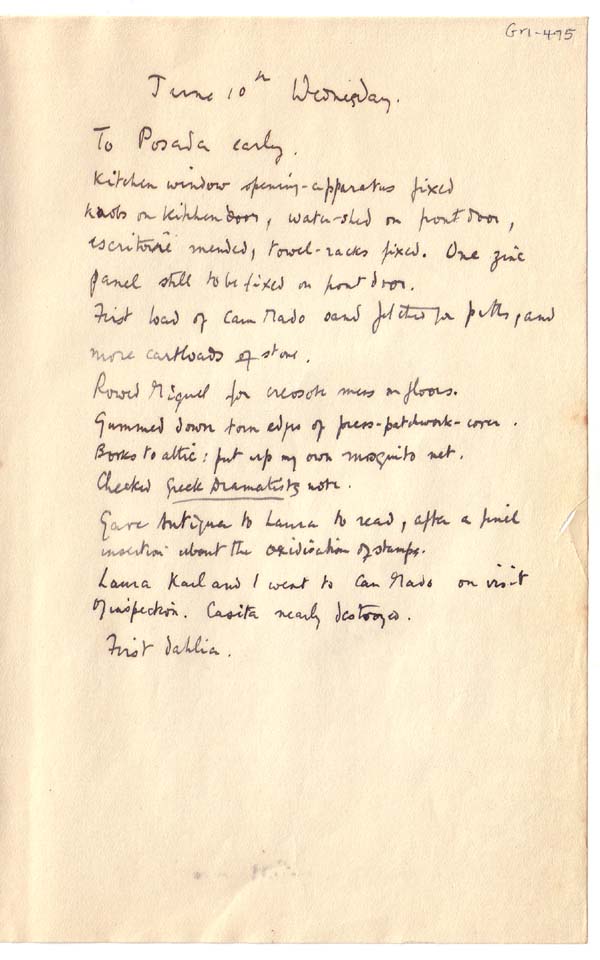 Gr1-495
June 10th Wednesday.
To Posada early.
Kitchen window opening-apparatus fixed
knobs on kitchen door, water-shed on front door,
escritoire mended, towel-racks fixed. One zinc
panel still to be fixed on front door.
First load of Cam Mado sand fetched for paths, and
more cartloads of stone.
Rowed Miguel for creosote mess on floors.
Gummed down torn edges of press-patchwork-cover.
Books to attic: put up my own mosquito net.
Checked Greek Dramatists note.
Gave Antigua to Laura to read, after a final
insertion about the oxidisation of stamps.
Laura Karl and I went to Can Mado on visit
of inspection. Casita nearly destroyed.
First dahlia.